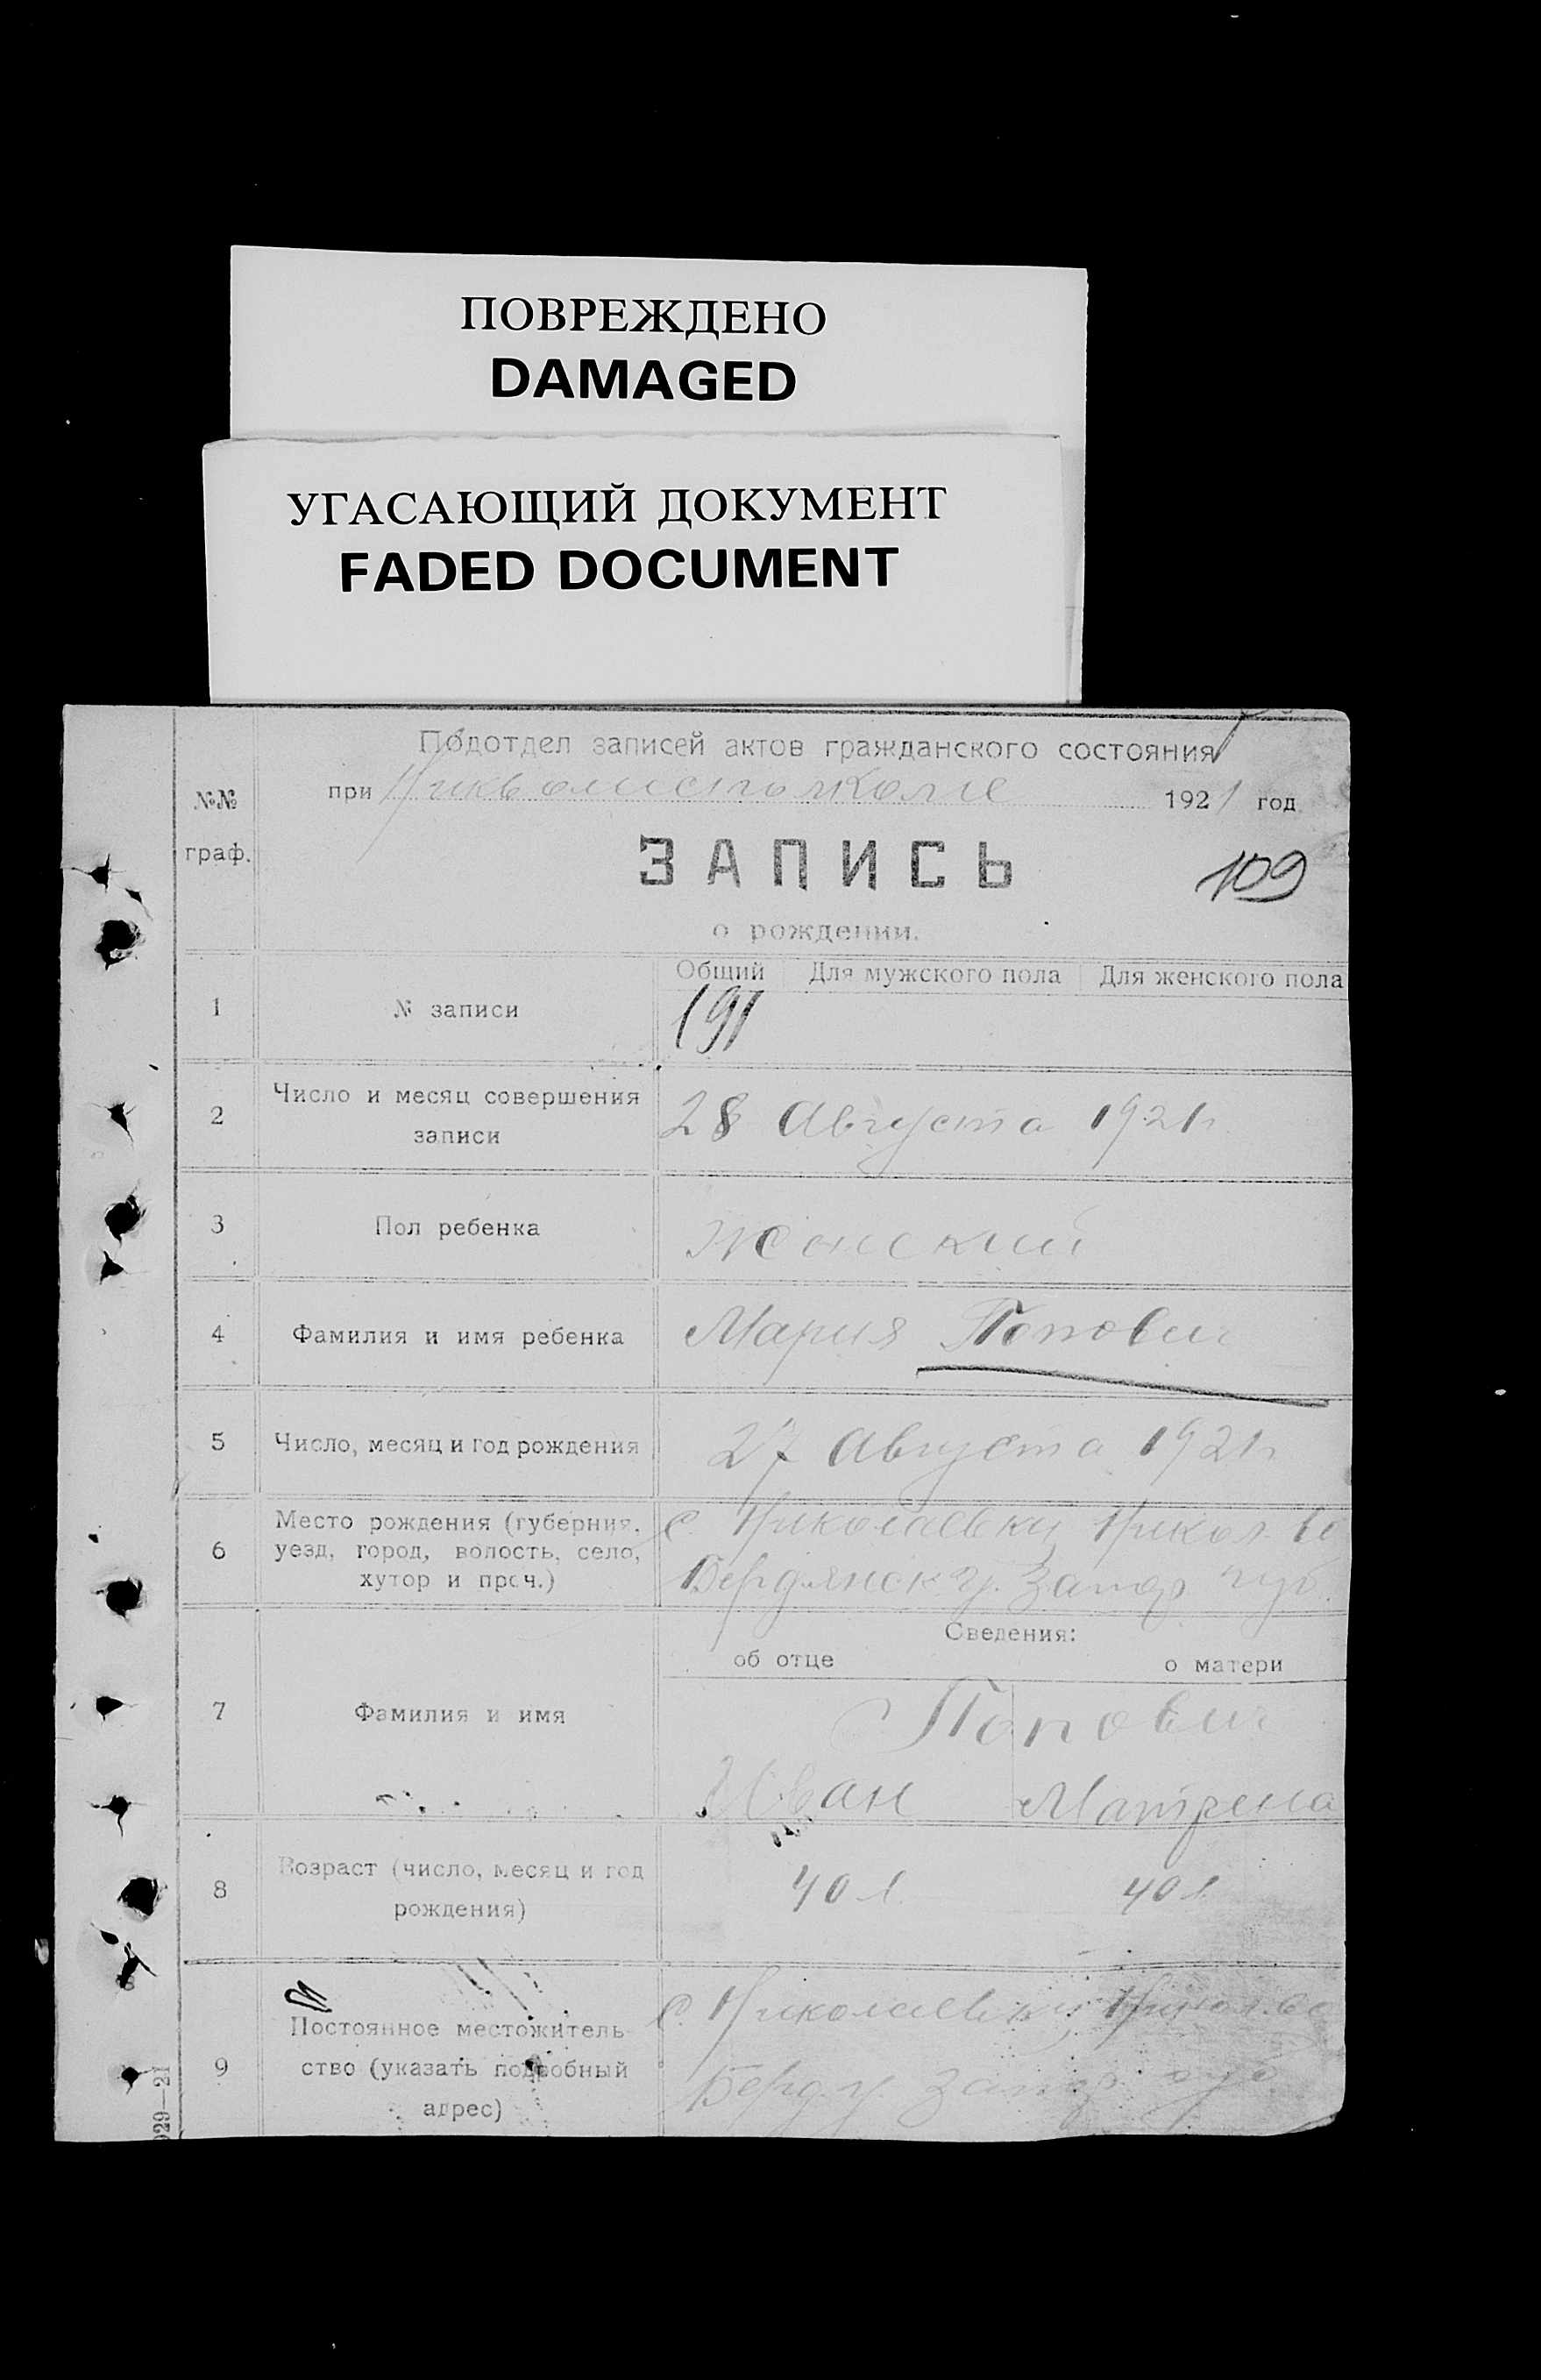 ПОВРЕЖДЕНО
DAMAGED
УГАСАЮЩИЙ ДОКУМЕНТ
FADED DOCUMENT
Подотдел записей актов гражданского состояния
при 1921 год
№№
граф.
ЗАПИСЬ
109
о рождении.
Общий Для мужского пола Для женского пола
1 № записи 191
2 Число и месяц совершения
записи
28 Августа 1921 г
3 Пол ребенка Женский
4 Фамилия и имя ребенка Мария Попович
5 Число, месяц и год рождения 27 Августа 1921 г
6 Место рождения (губерния,
уезд, город, волость, село,
хутор и проч.)
с. Николаевки Никол. во
Бердянск у. Запор губ.
Сведения:
об отце о матери
7 Фамилия и имя
Попович
Иван Матрена
8 Возраст (число, месяц и год
рождения)
40 л. 40 л.
9 Постоянное местожитель-
ство (указать подробный
адрес)
с. Николаевки Никол. во
Берд. у. Запор. губ.
929—21